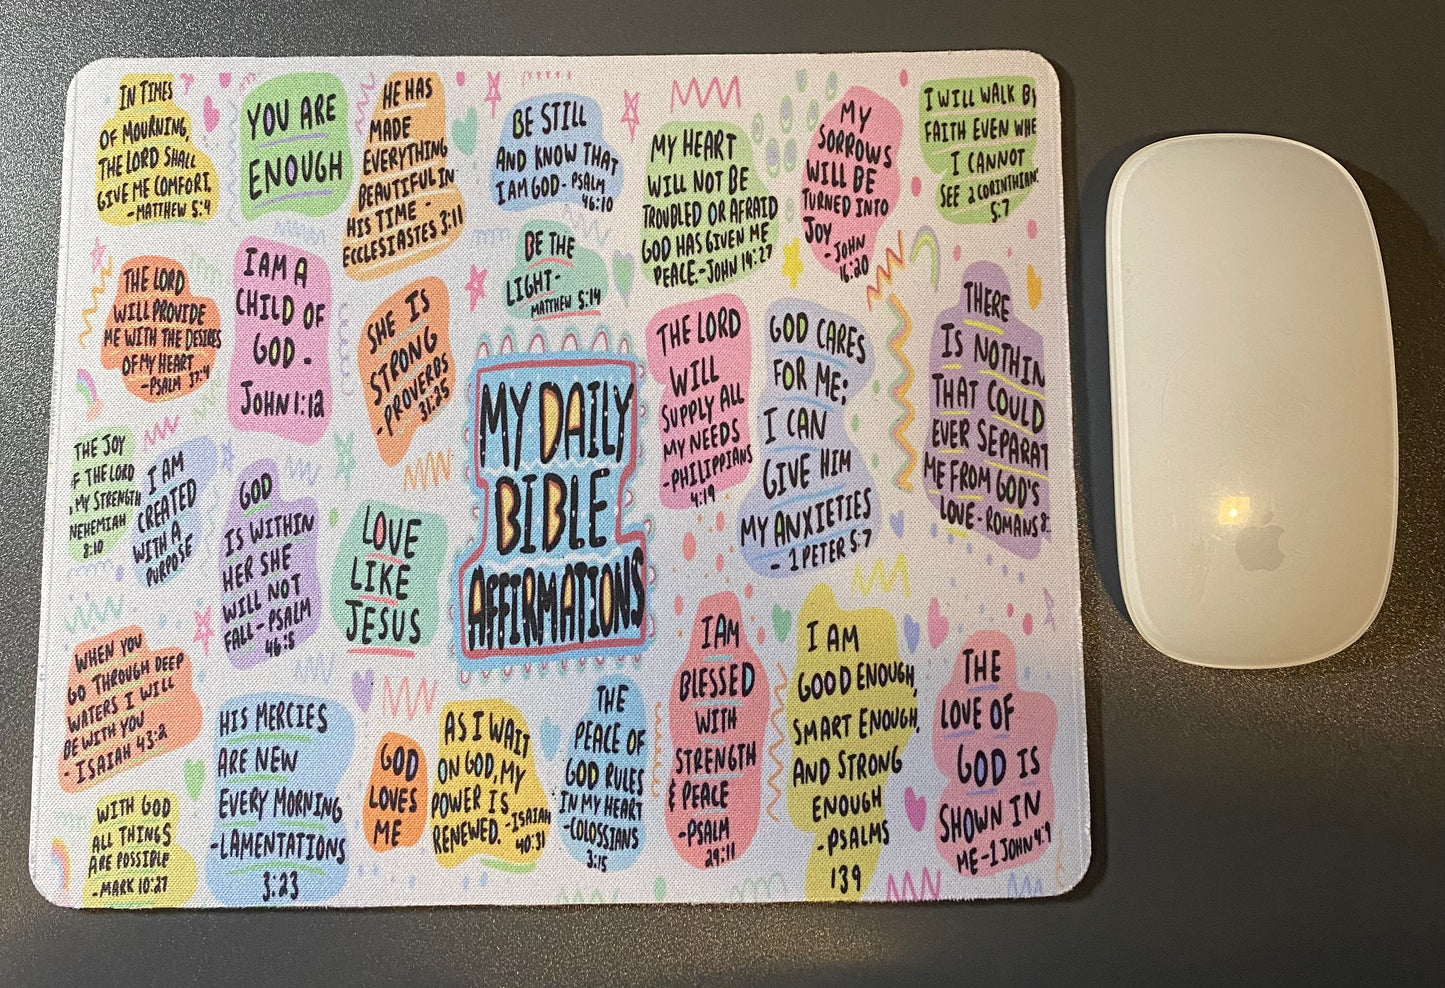 IN TIMES
OF MOURNING,
THE LORD SHALL
GIVE ME COMFORT.
-MATTHEW 5:4
YOU ARE
ENOUGH
HE HAS
MADE
EVERYTHING
BEAUTIFUL IN
HIS TIME -
ECCLESIASTES 3:11
BE STILL
AND KNOW THAT
I AM GOD - PSALM
46:10
MY HEART
WILL NOT BE
TROUBLED OR AFRAID
GOD HAS GIVEN ME
PEACE.-JOHN 14:27
MY
SORROWS
WILL BE
TURNED INTO
JOY
-JOHN
16:20
I WILL WALK BY
FAITH EVEN WHE
I CANNOT
SEE 2 CORINTHIAN
5:7
THE LORD
WILL PROVIDE
ME WITH THE DESIRES
OF MY HEART
-PSALM 37:4
I AM A
CHILD OF
GOD -
JOHN 1:12
SHE IS
STRONG
-PROVERBS
31:25
BE THE
LIGHT-
MATTHEW 5:14
THE LORD
WILL
SUPPLY ALL
MY NEEDS
-PHILIPPIANS
4:19
GOD CARES
FOR ME;
I CAN
GIVE HIM
MY ANXIETIES
- 1 PETER 5:7
THERE
IS NOTHIN
THAT COULD
EVER SEPARAT
ME FROM GOD'S
LOVE-ROMANS 8:
THE JOY
F THE LORD
MY STRENGTH
NEHEMIAH
8:10
I AM
CREATED
WITH A
PURPOSE
GOD
IS WITHIN
HER SHE
WILL NOT
FALL-PSALM
46:5
LOVE
LIKE
JESUS
MY DAILY
BIBLE
AFFIRMATIONS
WHEN YOU
GO THROUGH DEEP
WATERS I WILL
BE WITH YOU
- ISAIAH 43:2
HIS MERCIES
ARE NEW
EVERY MORNING
-LAMENTATIONS
3:23
GOD
LOVES
ME
AS I WAIT
ON GOD, MY
POWER IS
RENEWED. -ISAIAH
40:31
THE
PEACE OF
GOD RULES
IN MY HEART
-COLOSSIANS
3:15
I AM
BLESSED
WITH
STRENGTH
& PEACE
-PSALM
29:11
I AM
GOOD ENOUGH,
SMART ENOUGH,
AND STRONG
ENOUGH
-PSALMS
139
THE
LOVE OF
GOD IS
SHOWN IN
ME-1 JOHN 4:9
WITH GOD
ALL THINGS
ARE POSSIBLE
-MARK 10:27